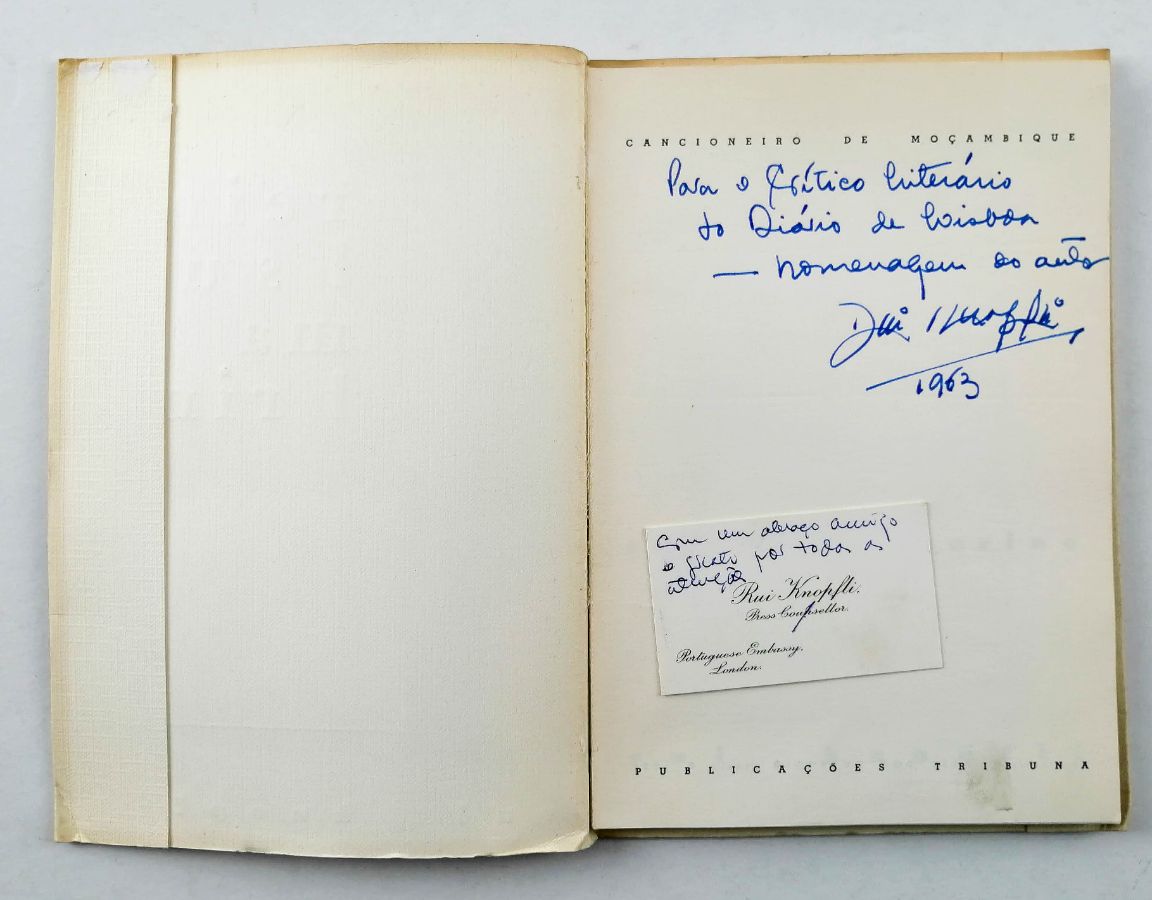 CANCIONEIRO DE MOÇAMBIQUE
Para o Crítico Literário
do Diário de Lisboa
— homenagem do autor
Rui Knopfli
1963
Com um abraço amigo
e grato por todas as
atenções
Rui Knopfli.
Press Counsellor.
Portuguese Embassy,
London.
PUBLICAÇÕES TRIBUNA